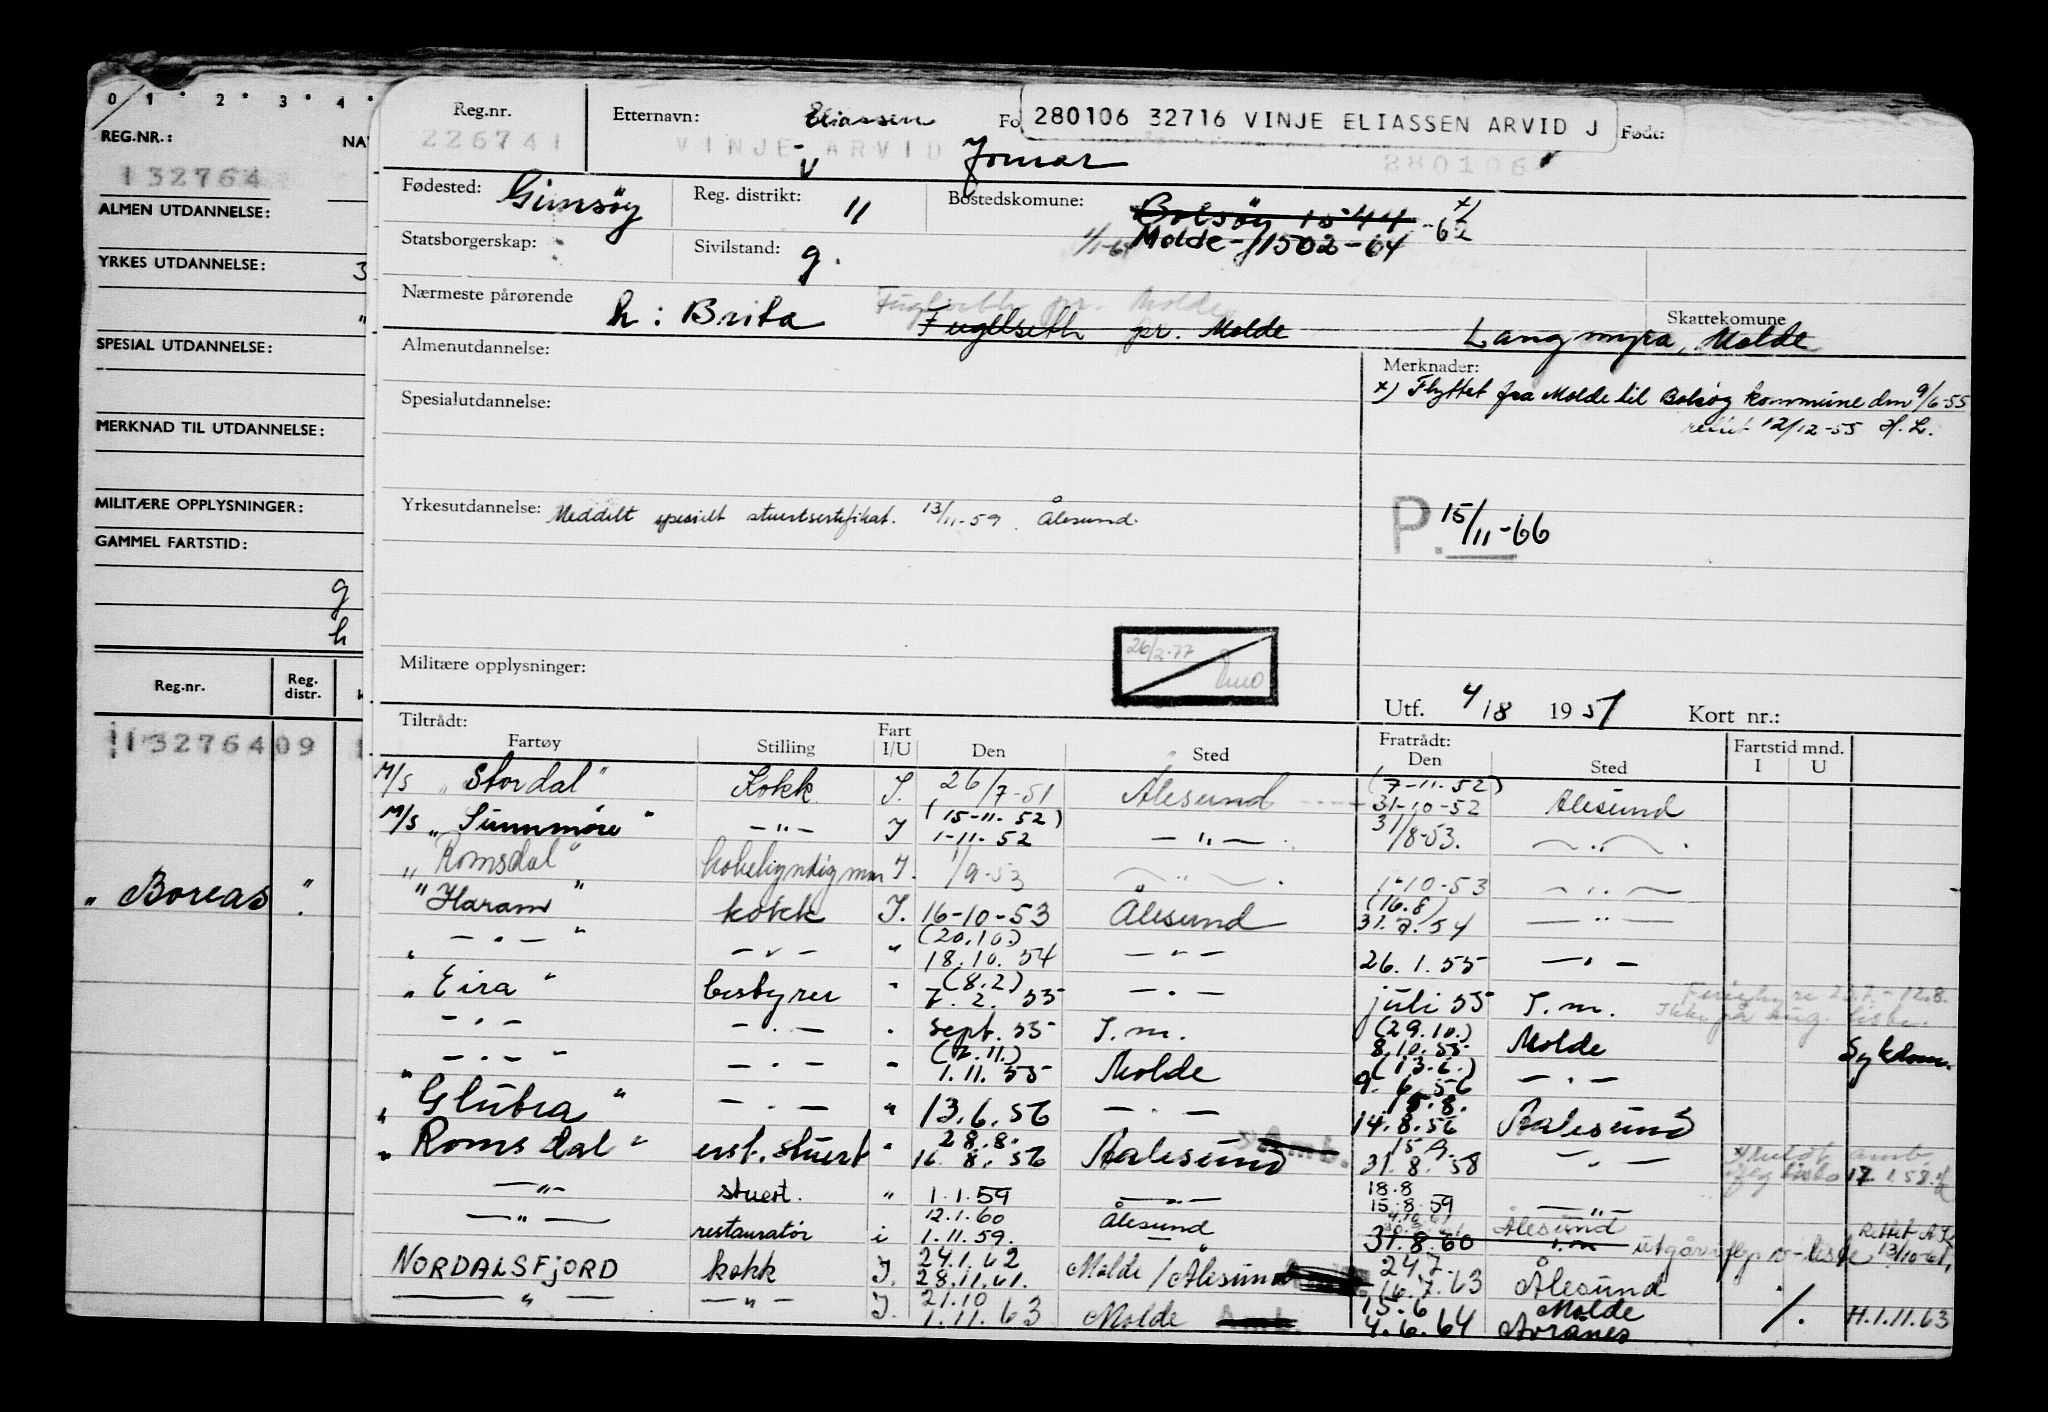 0 1 2 3 4
REG.NR.: NA
132764
ALMEN UTDANNELSE:
YRKES UTDANNELSE: 3
"
SPESIAL UTDANNELSE:
MERKNAD TIL UTDANNELSE:
MILITÆRE OPPLYSNINGER:
GAMMEL FARTSTID:
g
h
Reg.nr. Reg. distr.
13276409
" Boreas "
Reg.nr. Etternavn: Eliassen Fo 280106 32716 VINJE ELIASSEN ARVID J Født:
226741 VINJE ARVID Jomar 280106
v
Fødested: Gimsöy Reg. distrikt: 11 Bostedskomune: Bolsöy 1544 -62 x)
Statsborgerskap: Sivilstand: g. 1/1-64 Molde - 1502-64
Nærmeste pårørende h: Brita Fuglseth pr. Molde Skattekomune
Fuglseth pr. Molde Langmyra, Molde
Almenutdannelse: Merknader:
x) Flyttet fra Molde til Bolsöy kommune den 9/6-55
Spesialutdannelse: rettet 12/12-55 H. L.
Yrkesutdannelse: Meddelt spesielt stuertsertifikat. 13/11-59. Ålesund. P. 15/11-66
26/2-77
Militære opplysninger:
Utf. 4/8 1951 Kort nr.:
Tiltrådt: Fratrådt: Fartstid mnd.
Fartøy Stilling Fart I/U Den Sted Den Sted I U
M/S "Stordal" Kokk I. 26/7-51 Ålesund (7-11-52) 31-10-52 Ålesund
M/S "Sunnmöre" -"- I (15-11-52) 1-11-52 -"- 31/8-53. -"-
" Romsdal" kokekyndig mann I. 1/9-53 -"- 1-10-53 -"-
" Haram " kokk I. 16-10-53 Ålesund (16.8) 31.7.54 -"-
" -"- " -"- " (20.10.) 18.10.54 -"- 26.1.55 -"-
" Eira " bestyrer " (8.2) 7.2.55 -"- juli 55 I.m. 12.8.
-"- -"- " sept. 55 I.m. (29.10.) 8.10.55 Molde Sykdom.
" -"- " -"- " (2.11.) 1.11.55 Molde (13.6.) 9.6.56 -"-
" Glutra " -"- " 13.6.56 -"- 15.8. 14.8.56 Aalesund
" Romsdal " erst. stuert " 28.8. 16.8.56 Aalesund Amb. 15.9. 31.8.58 -"- 17.1.58
-"- stuert. " 1.1.59 -"- 18.8 15.8.59 -"-
-"- restauratör i 12.1.60 1.11.59. Ålesund 31.8.60 Ålesund I.m utgår iflg. Rettet 13/10-61
NORDALSFJORD kokk I. 24.1.62 28.11.61. Molde / Ålesund 24.7. 16.7.63 Ålesund
-"- -"- I. 21.10 1.11.63 Molde Amb. 15.6 4.6.64 Molde %. H.1.11.63